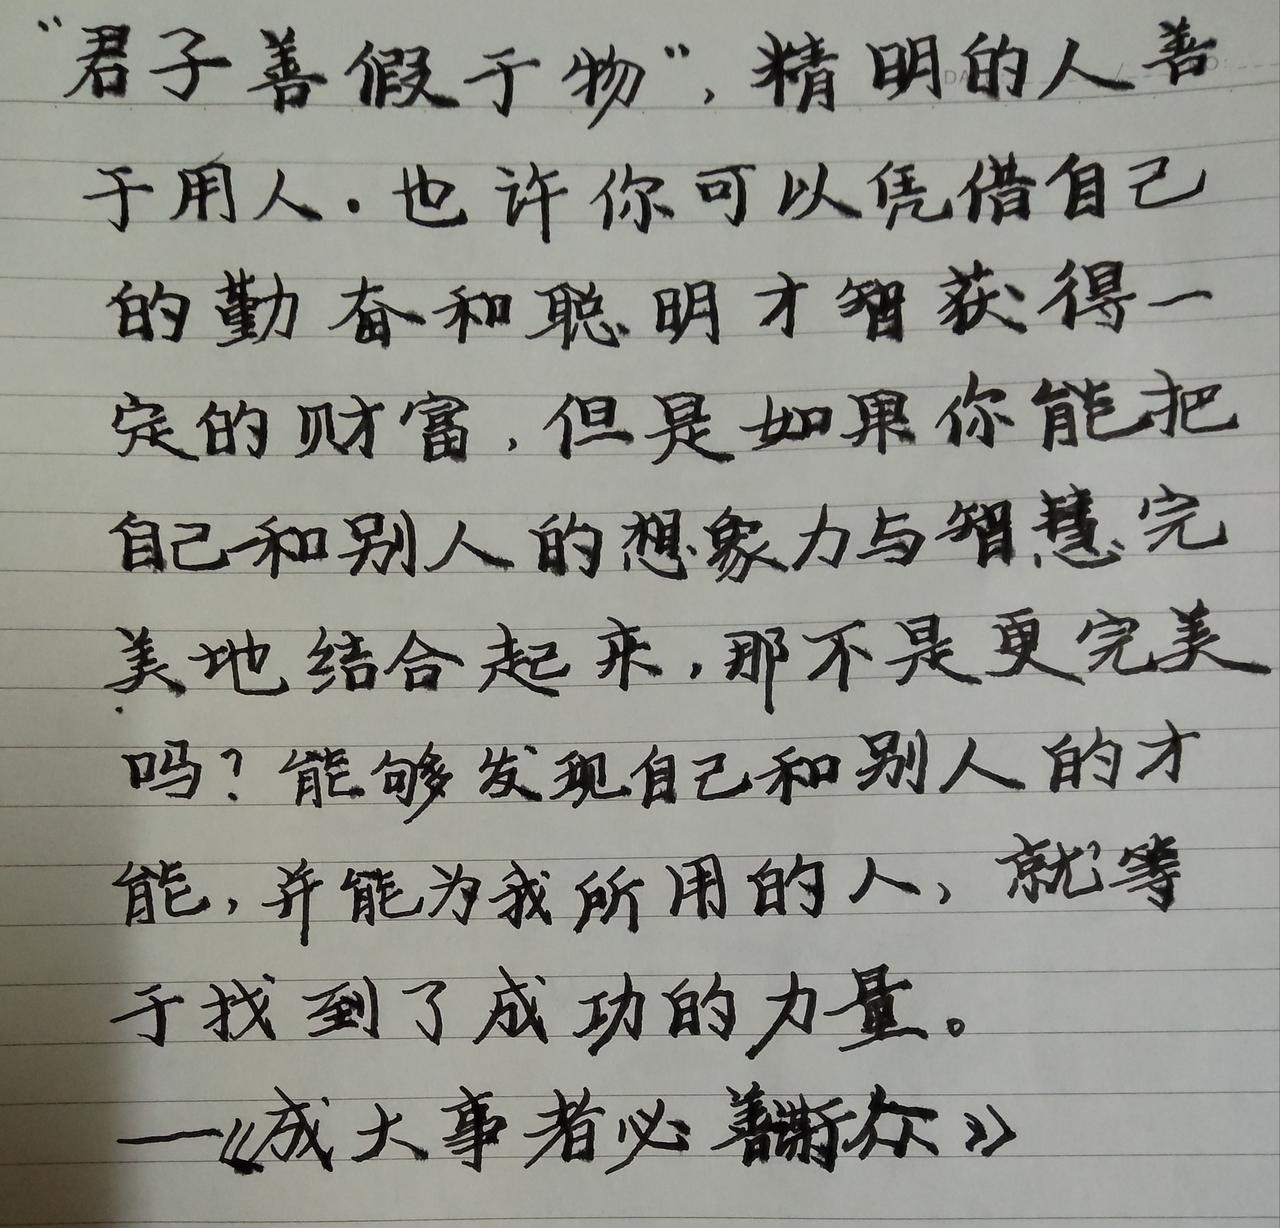 “君子善假于物”，精明的人善
于用人．也许你可以凭借自己
的勤奋和聪明才智获得一
定的财富，但是如果你能把
自己和别人的想象力与智慧完
美地结合起来，那不是更完美
吗？能够发现自己和别人的才
能，并能为我所用的人，就等
于找到了成功的力量。
—《成大事者必善众》